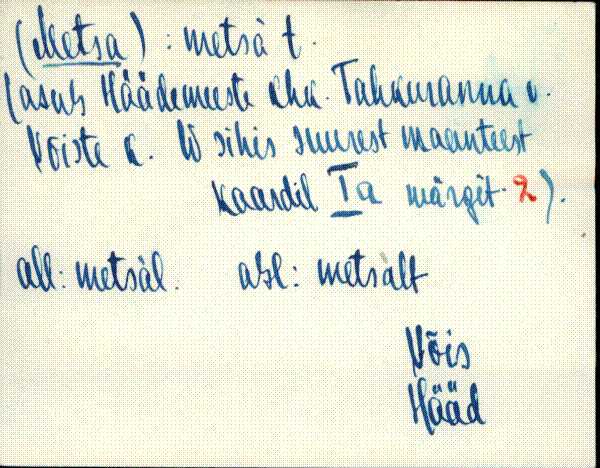 (Metsa) : metsà t.
(asub Häädemeeste khk. Tahkuranna v.
Võiste k. W sihis suurest maanteest
kaardil Ia märgit. 2).
all: metsàl. abl: metsàlt
Võis
Hääd